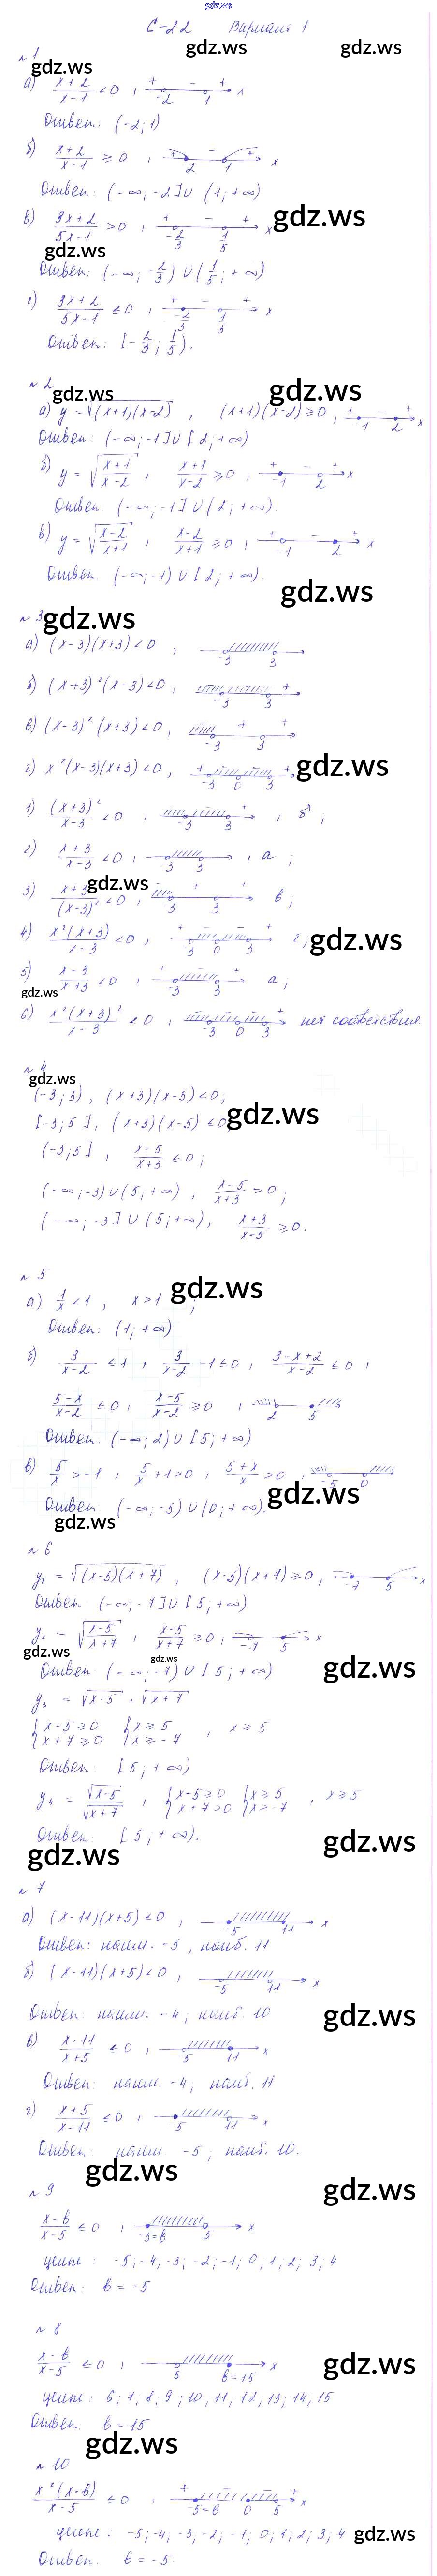 gdz.ws
С-22 Вариант 1
gdz.ws gdz.ws
№1
gdz.ws
а) (x+2)/(x-1) < 0 , + - + -2 1 x
Ответ: (-2; 1)
б) (x+2)/(x-1) ≥ 0 , + - -2 1 x
Ответ: (-∞; -2] ∪ (1; +∞)
в) (3x+2)/(5x-1) > 0 , + - + -2/3 1/5 x gdz.ws
gdz.ws
Ответ: (-∞; -2/3) ∪ (1/5; +∞)
г) (3x+2)/(5x-1) ≤ 0 , + - + -2/3 1/5 x
Ответ: [-2/3; 1/5).
№2
gdz.ws gdz.ws
а) y = √((x+1)(x-2)) , (x+1)(x-2) ≥ 0 , + - + -1 2 x
Ответ: (-∞; -1] ∪ [2; +∞)
б) y = √((x+1)/(x-2)) , (x+1)/(x-2) ≥ 0 , + - + -1 2 x
Ответ: (-∞; -1] ∪ (2; +∞).
в) y = √((x-2)/(x+1)) , (x-2)/(x+1) ≥ 0 , + - + -1 2 x
Ответ: (-∞; -1) ∪ [2; +∞).
gdz.ws
№3
gdz.ws
а) (x-3)(x+3) < 0 , -3 3
б) (x+3)²(x-3) < 0 , - - + -3 3
в) (x-3)²(x+3) < 0 , - + + -3 3
г) x²(x-3)(x+3) < 0 , + - - + -3 0 3 gdz.ws
1) (x+3)²/(x-3) < 0 , - - + -3 3 , б ;
2) (x+3)/(x-3) < 0 , -3 3 , а ;
gdz.ws
3) (x+3)/(x-3)² < 0 , - + + -3 3 в ;
4) x²(x+3)/(x-3) < 0 , + - - + -3 0 3 г ; gdz.ws
5) (x-3)/(x+3) < 0 , + - + -3 3 а ;
gdz.ws
6) x²(x+3)²/(x-3) < 0 , - - - + -3 0 3 нет соответствия.
№4
gdz.ws
(-3; 5) , (x+3)(x-5) < 0 ;
gdz.ws
[-3; 5] , (x+3)(x-5) ≤ 0 ;
(-3; 5] , (x-5)/(x+3) ≤ 0 ;
(-∞; -3) ∪ (5; +∞) , (x-5)/(x+3) > 0 ;
(-∞; -3] ∪ (5; +∞) , (x+3)/(x-5) ≥ 0.
№5
gdz.ws
а) 1/x < 1 , x > 1 ;
Ответ: (1; +∞)
б) 3/(x-2) ≤ 1 , 3/(x-2) - 1 ≤ 0 , (3-x+2)/(x-2) ≤ 0 ,
(5-x)/(x-2) ≤ 0 , (x-5)/(x-2) ≥ 0 , 2 5
Ответ: (-∞; 2) ∪ [5; +∞)
в) 5/x > -1 , 5/x + 1 > 0 , (5+x)/x > 0 , -5 0
gdz.ws
Ответ: (-∞; -5) ∪ (0; +∞).
gdz.ws
№6
y₁ = √((x-5)(x+7)) , (x-5)(x+7) ≥ 0 , -7 5 x
Ответ (-∞; -7] ∪ [5; +∞)
y₂ = √((x-5)/(x+7)) , (x-5)/(x+7) ≥ 0 , -7 5 x
gdz.ws gdz.ws gdz.ws
Ответ (-∞; -7) ∪ [5; +∞)
y₃ = √(x-5) · √(x+7)
{ x-5 ≥ 0 { x ≥ 5 , x ≥ 5
{ x+7 ≥ 0 { x ≥ -7
Ответ: [5; +∞)
y₄ = √(x-5)/√(x+7) , { x-5 ≥ 0 { x ≥ 5 , x ≥ 5
{ x+7 > 0 { x > -7
Ответ: [5; +∞).
gdz.ws gdz.ws
№7
а) (x-11)(x+5) ≤ 0 , -5 11 x
Ответ: наим. -5 , наиб. 11
б) (x-11)(x+5) < 0 , -5 11 x
Ответ: наим. -4 ; наиб. 10
gdz.ws
в) (x-11)/(x+5) ≤ 0 , -5 11 x
Ответ: наим. -4 ; наиб. 11
г) (x+5)/(x-11) ≤ 0 , -5 11 x
Ответ: наим -5 ; наиб. 10.
gdz.ws gdz.ws
№9
(x-b)/(x-5) ≤ 0 , -5=b 5 x
целые : -5; -4; -3; -2; -1; 0; 1; 2; 3; 4
Ответ: b = -5
№8
gdz.ws
(x-b)/(x-5) ≤ 0 , 5 b=15 x
целые : 6; 7; 8; 9; 10; 11; 12; 13; 14; 15
Ответ: b = 15
gdz.ws
№10
x²(x-b)/(x-5) ≤ 0 , + - - + -5=b 0 5 x
целые : -5; -4; -3; -2; -1; 0; 1; 2; 3; 4 gdz.ws
Ответ: b = -5.